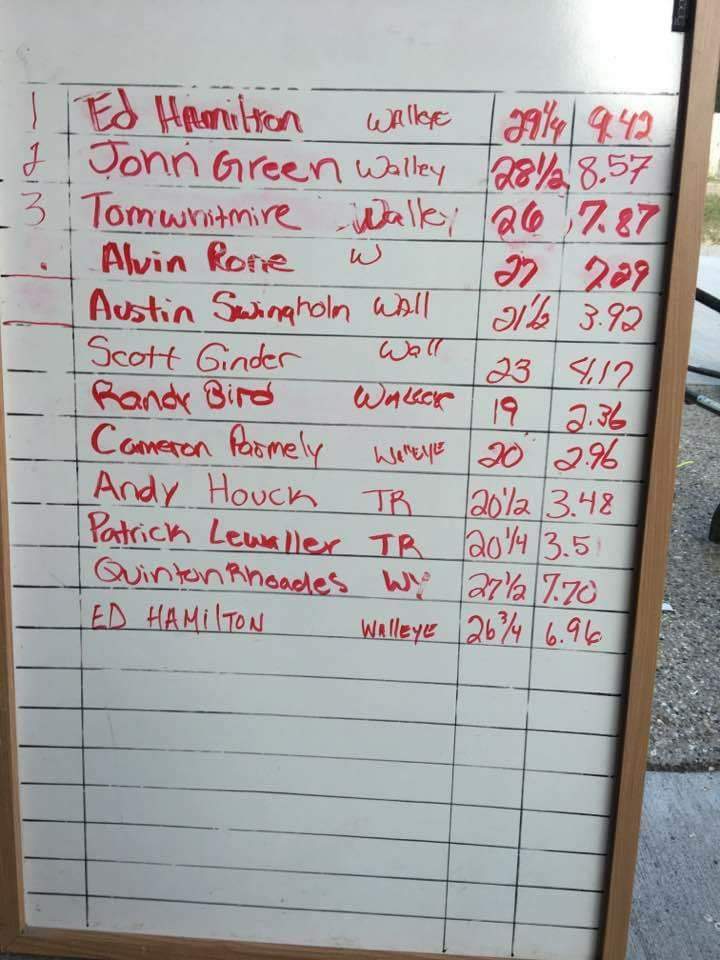 1 Ed Hamilton Walleye 29 1/4 9.42
2 John Green Walley 28 1/2 8.57
3 Tom whitmire Walley 26 7.87
. Alvin Rone W 27 7.29
Austin Swingholm Wall 21 1/2 3.92
Scott Ginder Wall 23 4.17
Randy Bird 19 2.36
Cameron Parmely Walleye 20 2.96
Andy Houck TR 20 1/2 3.48
Patrick Lewaller TR 20 1/4 3.5
Quinton Rhoades 27 1/2 7.70
ED HAMILTON WAllEYE 26 3/4 6.96